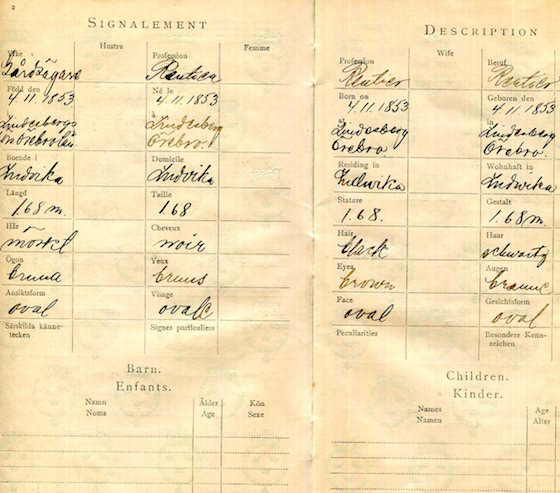 2
SIGNALEMENT
Yrke Hustru Profession Femme
Gårdsägare Rentier
Född den Né le
4.11.1853 4.11.1853
à
Lindesbergs Lindesberg
Örebro län Örebro.
Boende i Domicile
Ludvika Ludvika
Längd Taille
1.68 m. 1.68
Hår Cheveux
mörkt noir
Ögon Yeux
bruna bruns
Ansiktsform Visage
oval ovale
Särskilda känne- Signes particuliers
tecken
Barn.
Enfants.
Namn Ålder Kön
Noms Age Sexe
DESCRIPTION
Profession Wife Beruf
Rentier Rentier
Born on Geboren den
4.11.1853 4.11.1853
at in
Lindesberg Lindesberg
Örebro Örebro.
Residing in Wohnhaft in
Ludwika Ludwika
Stature Gestalt
1.68. 1.68 m.
Hair Haar
black schwartz
Eyes Augen
brown braune
Face Gesichtsform
oval oval
Peculiarities Besondere Kenn-
zeichen
Children.
Kinder.
Names Age
Namen Alter